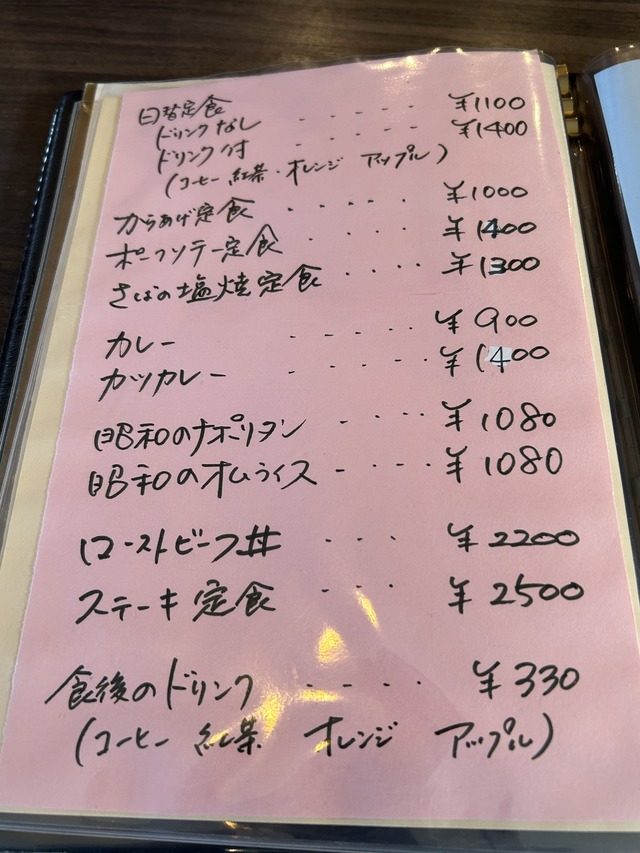 日替定食
ドリンクなし - - - - - ¥1100
ドリンク付 - - - - - ¥1400
(コーヒー 紅茶・オレンジ アップル)
からあげ定食 - - - - - ¥1000
ポークソテー定食 - - - - ¥1400
さばの塩焼定食 - - - - ¥1300
カレー - - - - - ¥900
カツカレー - - - - - ¥1400
昭和のナポリタン - - - - ¥1080
昭和のオムライス - - - - ¥1080
ローストビーフ丼 - - - ¥2200
ステーキ定食 - - - ¥2500
食後のドリンク - - - - - ¥330
(コーヒー 紅茶 オレンジ アップル)